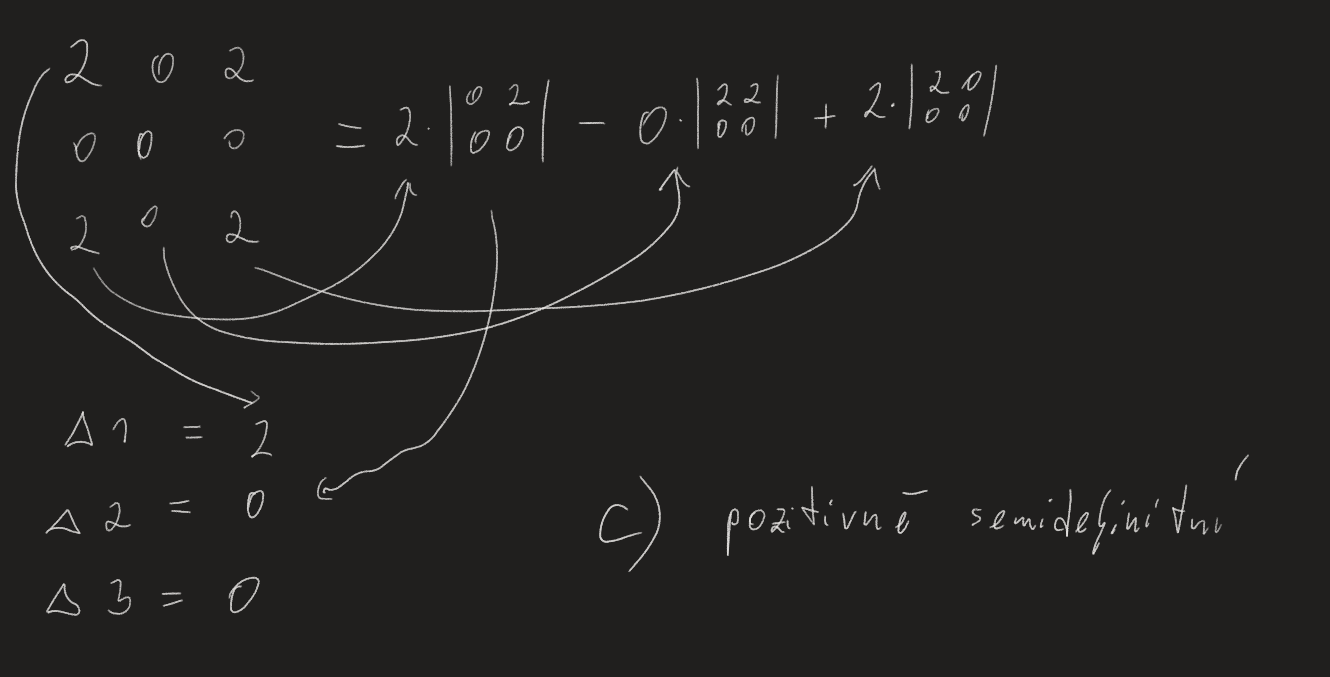 2 0 2
0 0 0
2 0 2
= 2 · | 0 2 | - 0 · | 2 2 | + 2 · | 2 0 |
| 0 0 | | 0 0 | | 0 0 |
Δ 1 = 2
Δ 2 = 0
Δ 3 = 0
c) pozitivně semidefinitní